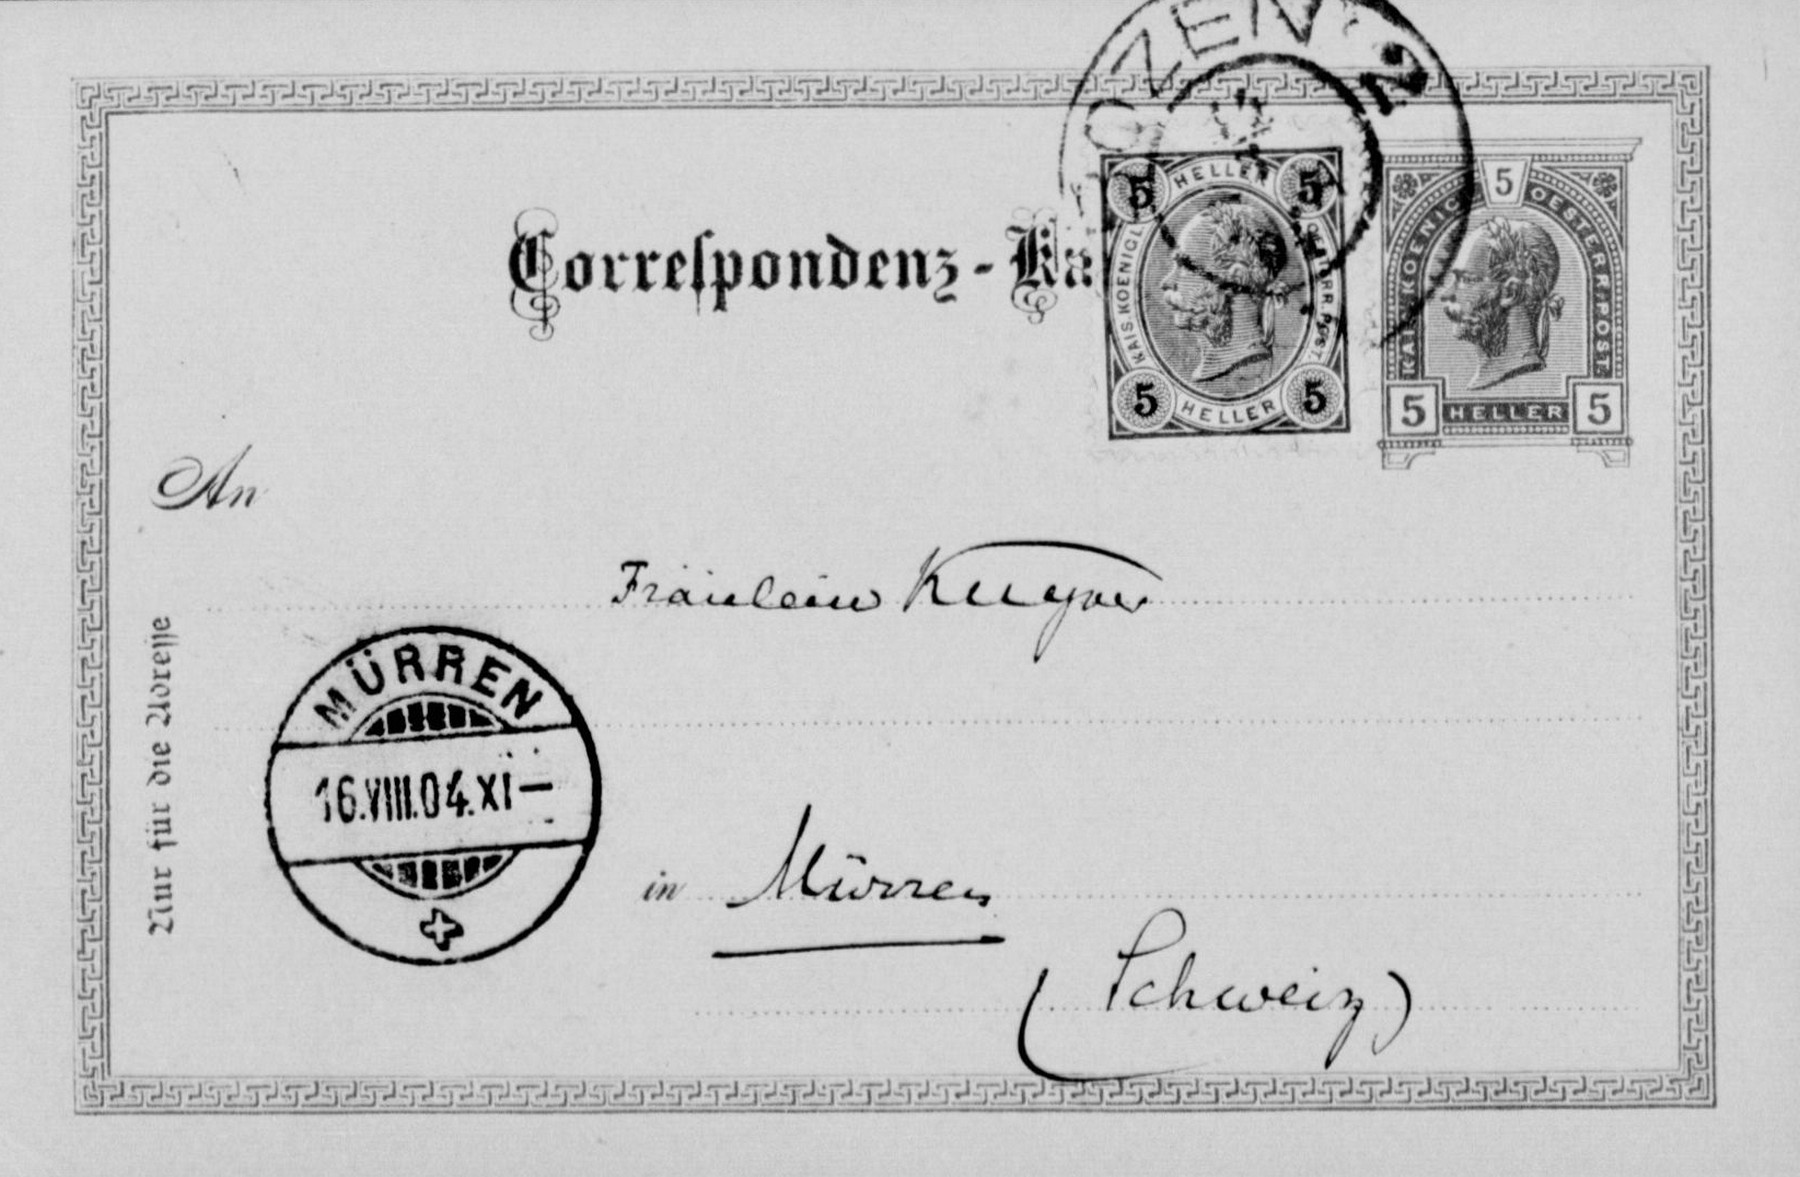 OZEN 2
Correspondenz-Ka
5 HELLER 5
KAIS. KOENIGL. OESTERR. POST.
5 HELLER 5
5
KAIS. KOENIGL. OESTERR. POST.
5 HELLER 5
An
Fräulein Kuyper
MÜRREN
16.VIII.04.XI–
in Mürren
(Schweiz)
Nur für die Adresse